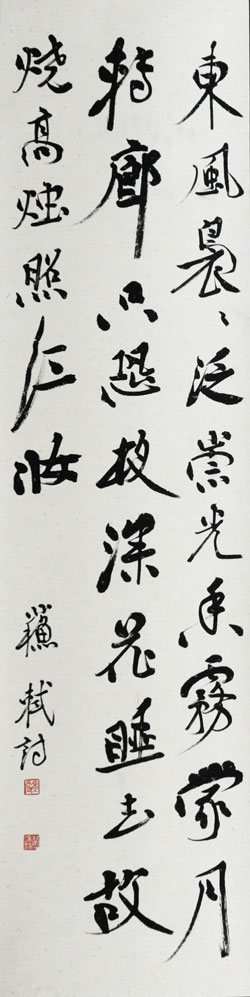 東風裊々泛崇光香霧蒙月
轉廊只恐夜深花睡去故
烧高烛照红妝
蘇軾詩